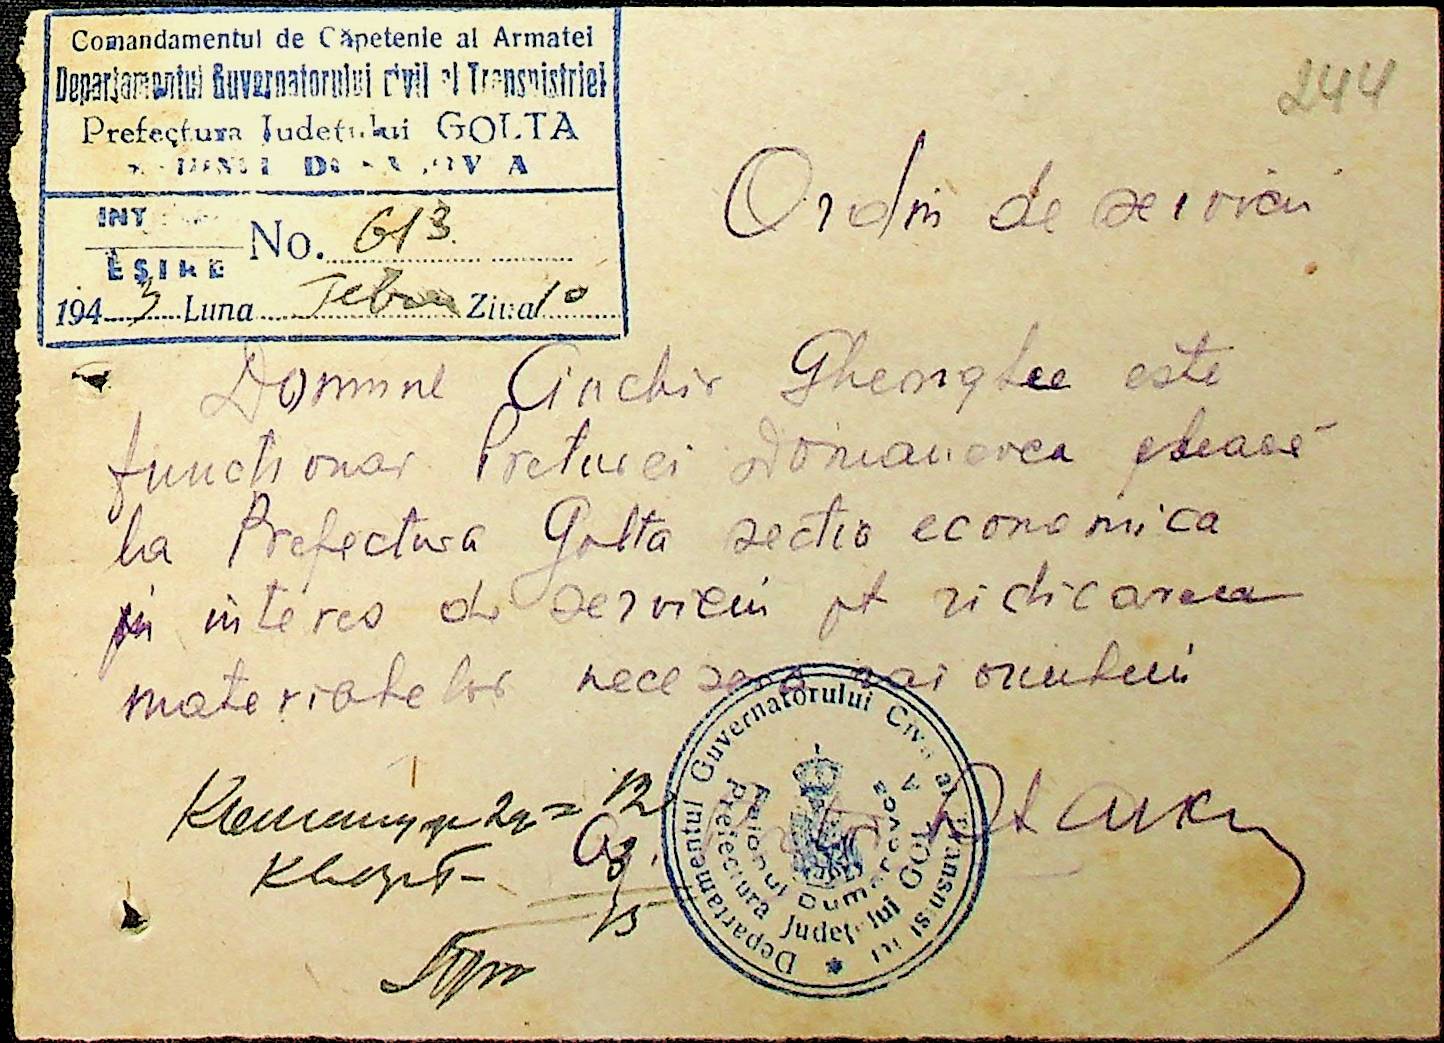 Comandamentul de Căpetenie al Armatei
Departamentul Guvernatorului civil al Transnistriei
Prefectura Județului GOLTA
244
Ordin de serviciu
INT
No. 613
EȘIRE
1943 Luna Febru Ziua 10
Domnul Chichir Gheorghe este
functionar Preturei Domanevca pleacă
la Prefectura Golta sectia economica
in interes de serviciu pt ridicarea
materialelor necesare raionului
Departamentul Guvernatorului Civil al Transnistriei
Prefectura Județului GOLTA
Raionul Dumanovca